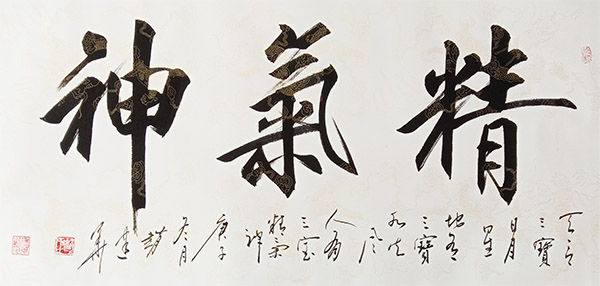 精氣神
天有
三寶
日月
星
地有
三寶
水火
風
人有
三宝
精氣
神
庚子
冬月
建
華